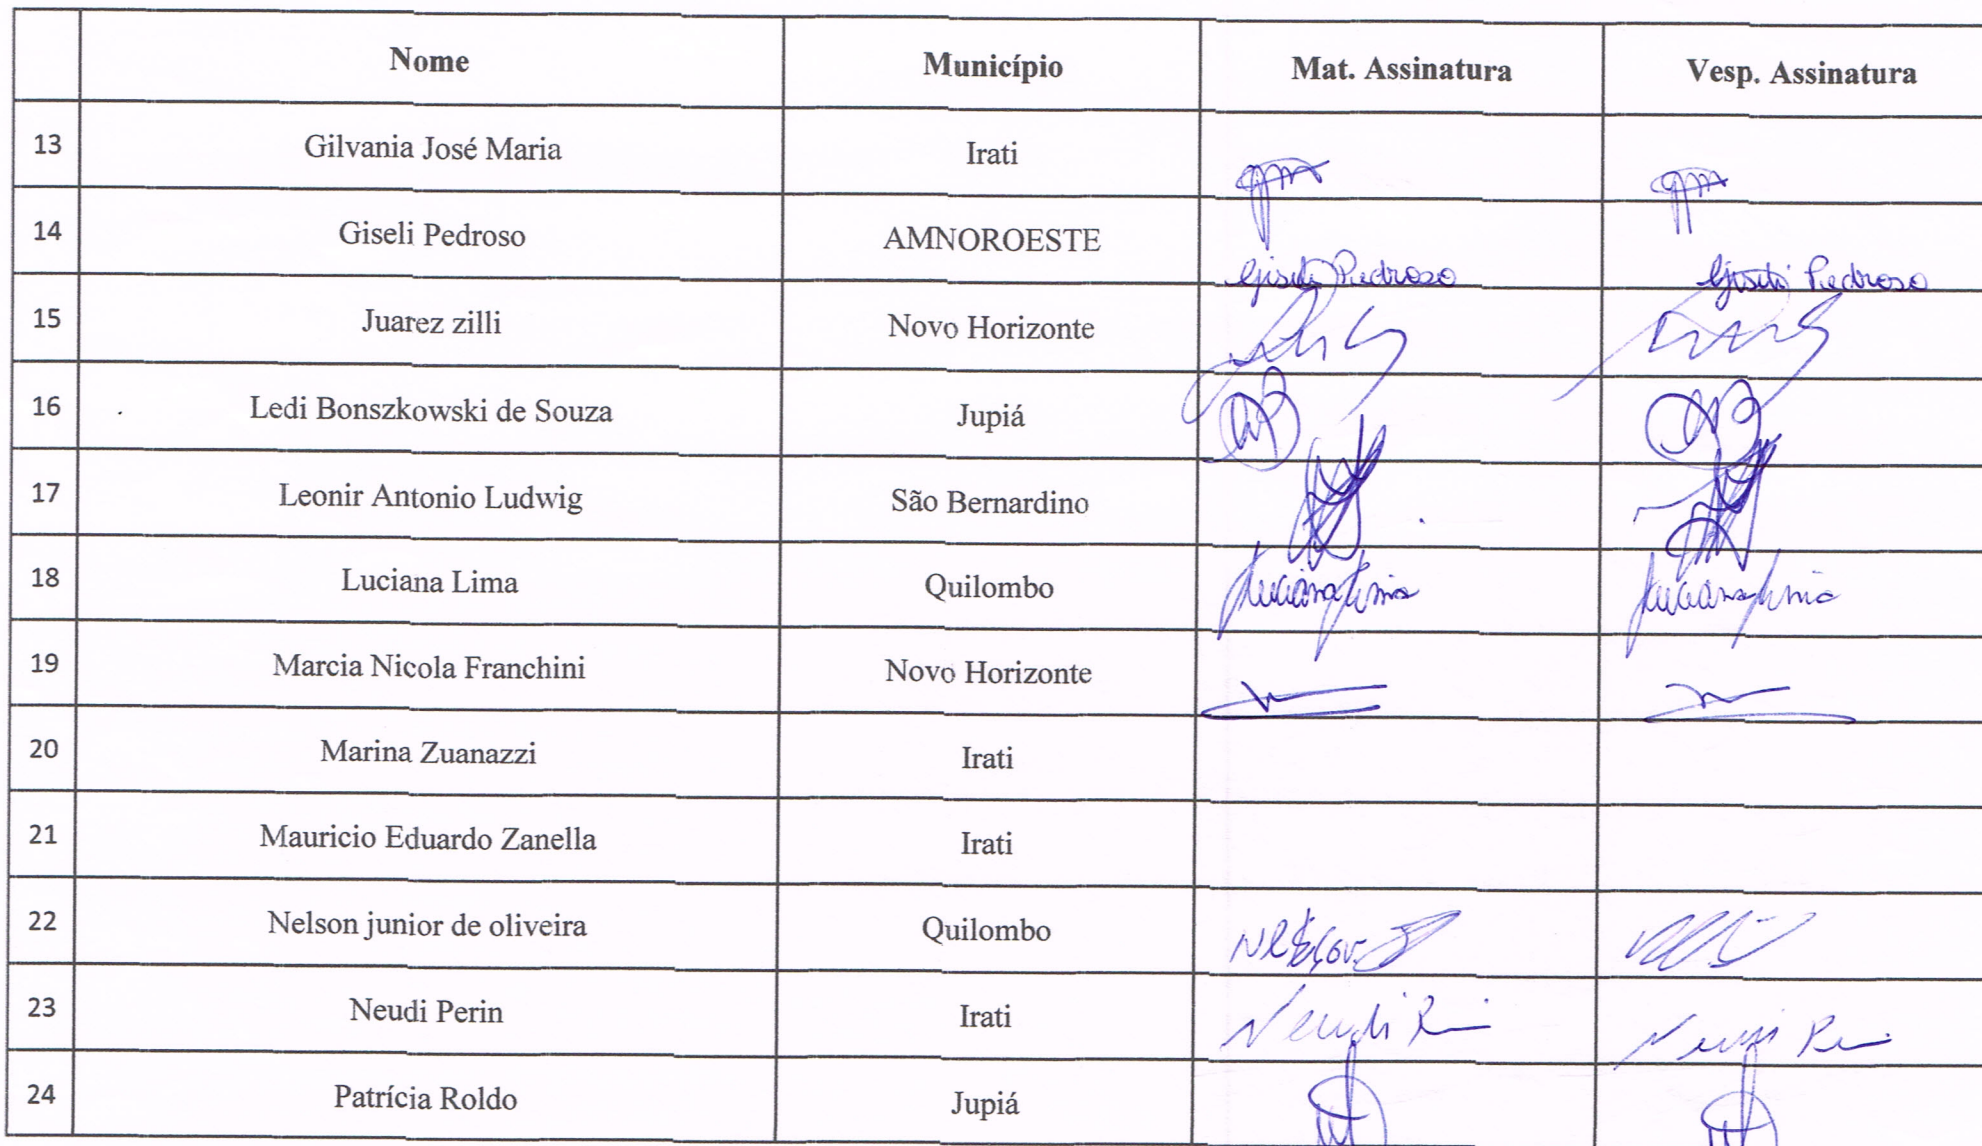 Nome Município Mat. Assinatura Vesp. Assinatura
13 Gilvania José Maria Irati
14 Giseli Pedroso AMNOROESTE Giseli Pedroso Giseli Pedroso
15 Juarez zilli Novo Horizonte
16 Ledi Bonszkowski de Souza Jupiá
17 Leonir Antonio Ludwig São Bernardino
18 Luciana Lima Quilombo Luciana Lima Luciana Lima
19 Marcia Nicola Franchini Novo Horizonte
20 Marina Zuanazzi Irati
21 Mauricio Eduardo Zanella Irati
22 Nelson junior de oliveira Quilombo
23 Neudi Perin Irati Neudi Neudi
24 Patrícia Roldo Jupiá